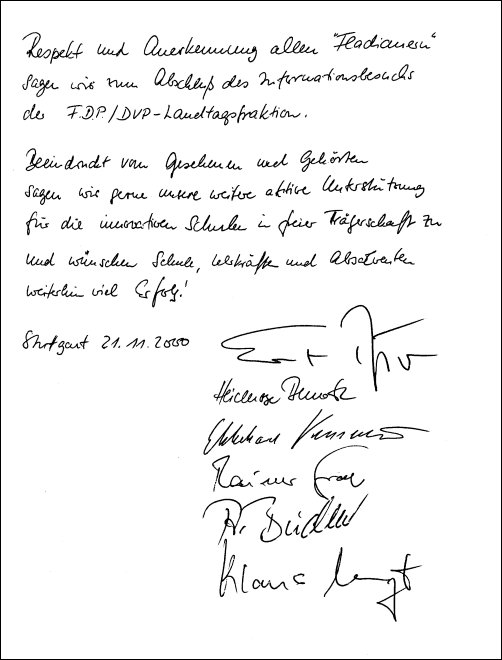 Respekt und Anerkennung allen "Fladianern"
sagen wir zum Abschluß des Informationsbesuchs
der F.D.P./DVP-Landtagsfraktion.
Beeindruckt vom Gesehenen und Gehörten
sagen wir gerne unsere weitere aktive Unterstützung
für die innovativen Schulen in freier Trägerschaft zu
und wünschen Schule, Lehrkräften und Absolventen
weiterhin viel Erfolg!
Stuttgart 21.11.2000
Heiderose
Ekkehard
Rainer
Klaus